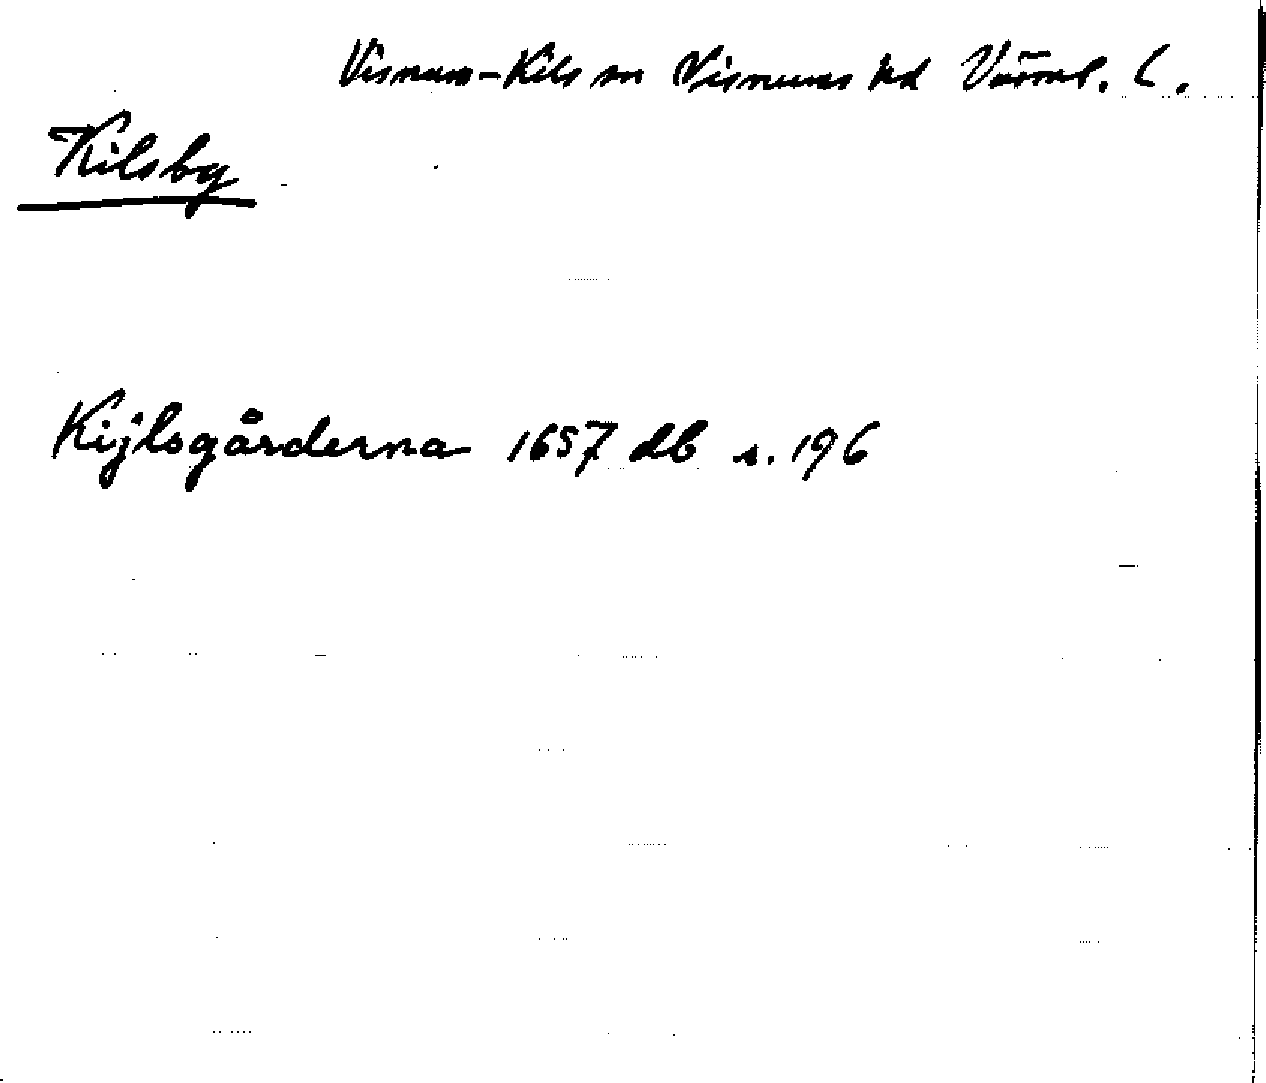 Visnum-Kils sn Visnums hd Värml. l.
Kilsby
Kijlsgårderna 1657 db s. 196